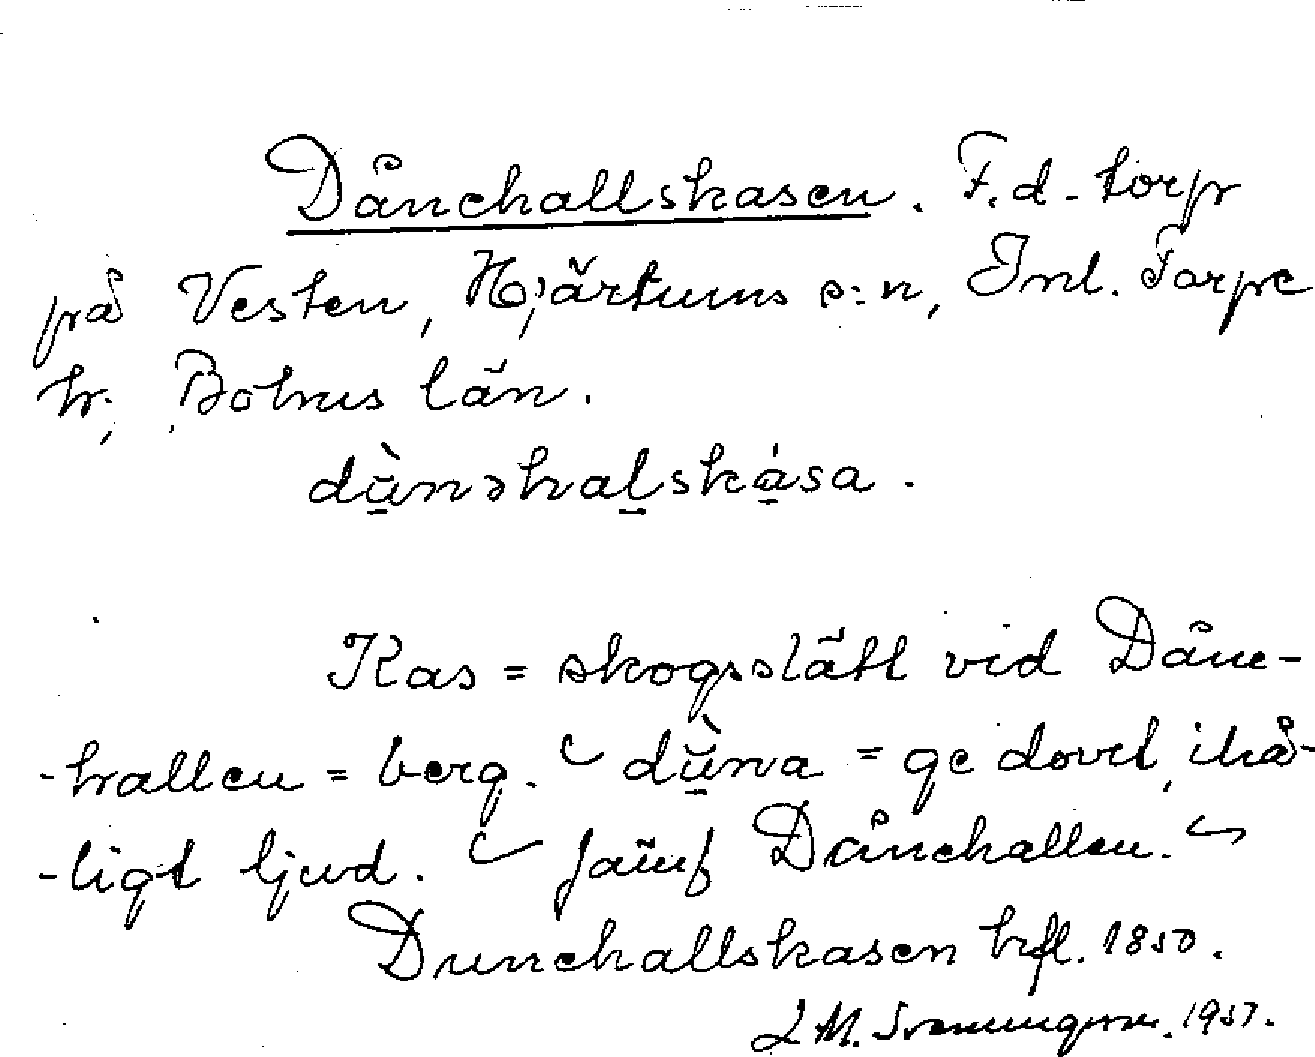 Dånehallskasen. F.d. torp
på Vesten, Hjärtums s:n, Inl. Torpe
hr, Bohus län.
dùnəhaḻskása.
Kas = skogsslätt vid Dåne-
-hallen = berg. dùna = ge dovt, ihå-
-ligt ljud. Jämf Dånehallen.
Dunehallskasen hfl. 1850.
1957.